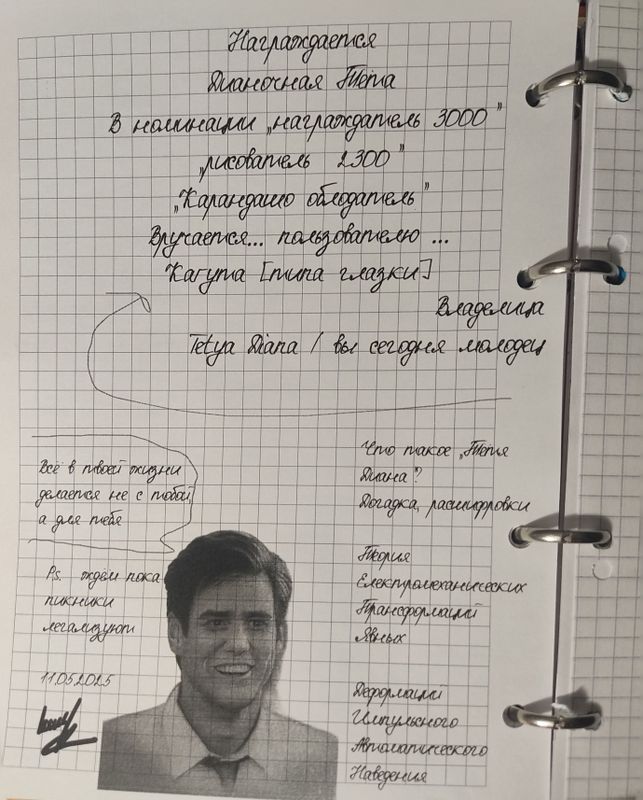 Награждается
Дианочная Тётя
В номинации „награждатель 3000"
„рисователь 2300"
„Карандашо облодатель"
Вручается... пользователю ...
Кагута [типа глазки]
Владелица
Tetya Diana / вы сегодня молодец
Всё в твоей жизни
делается не с тобой,
а для тебя
P.s. ждём пока
пикники
легализуют
11.05.2025
Что такое „Тётя
Диана"?
Догадка, расшифровки
Теория
Електромеханических
Трансформаций
Явных
Деформаций
Импульсного
Автоматического
Наведения